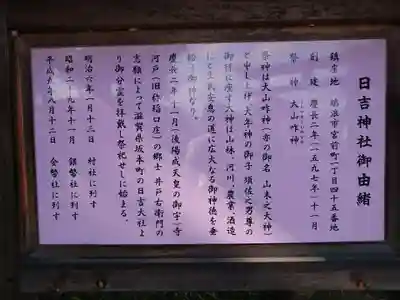 日吉神社御由緒
鎮座地 鴻巣市宮前町一丁目四十五番地
創建 慶長二年(一五九七年)十一月
祭神 大山咋神
祭神は大山咋神(亦の御名 山末之大神)
と申し上げ大年神の御子 須佐之男尊の
御孫に痤す大神は山林、河川、農業、酒造
して生民安息の道に広大なる御神徳を垂
給う御神なり。
慶長二年十一月(後陽成天皇の御宇)寺
河戸(旧称福口座)の郷士 井戸右衛門の
志願によって滋賀県坂本町の日吉大社よ
り御分霊を拝戴し祭祀せしに始まる。
明治六年一月十三日 村社に列す
昭和二十九年十一月 銀幣社に列す
平成五年八月十二日 金幣社に列す